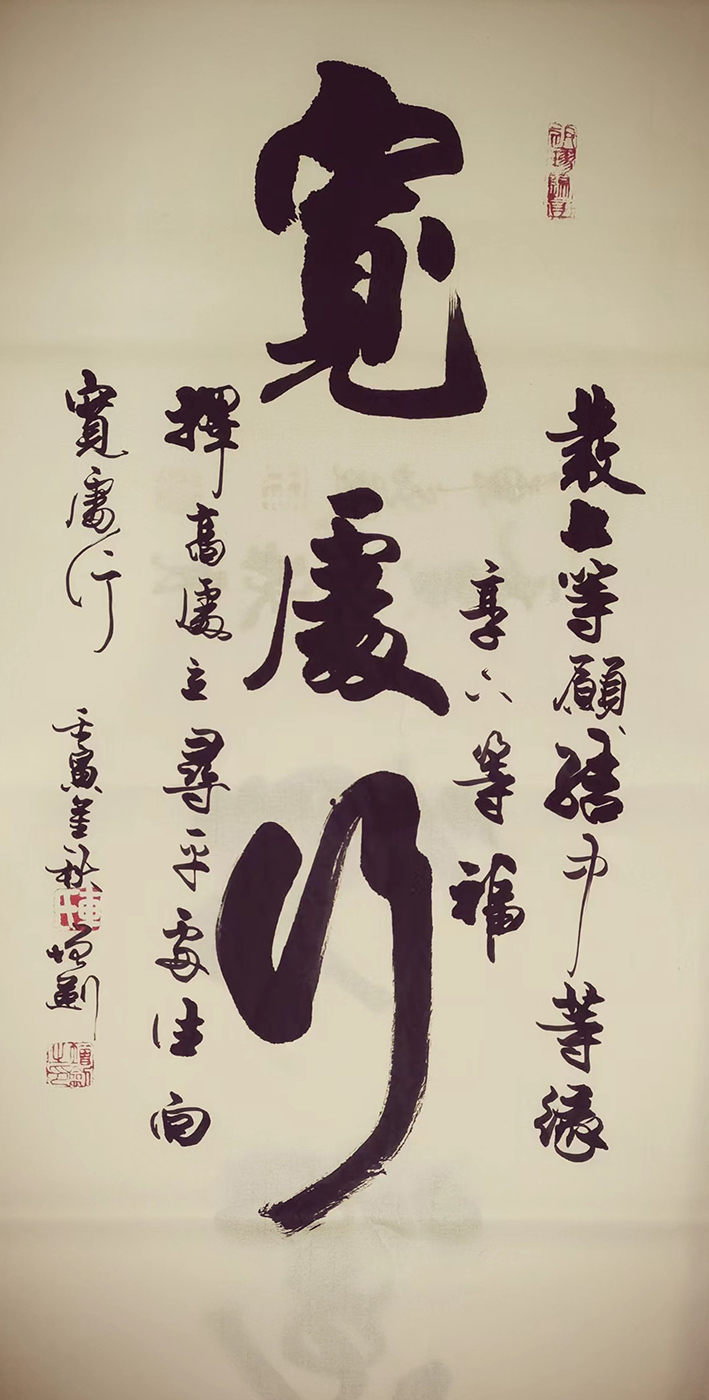 發上等願結中等緣
享下等福
寬處行
擇高處立尋平處住向
寬處行 壬寅金秋 增劍